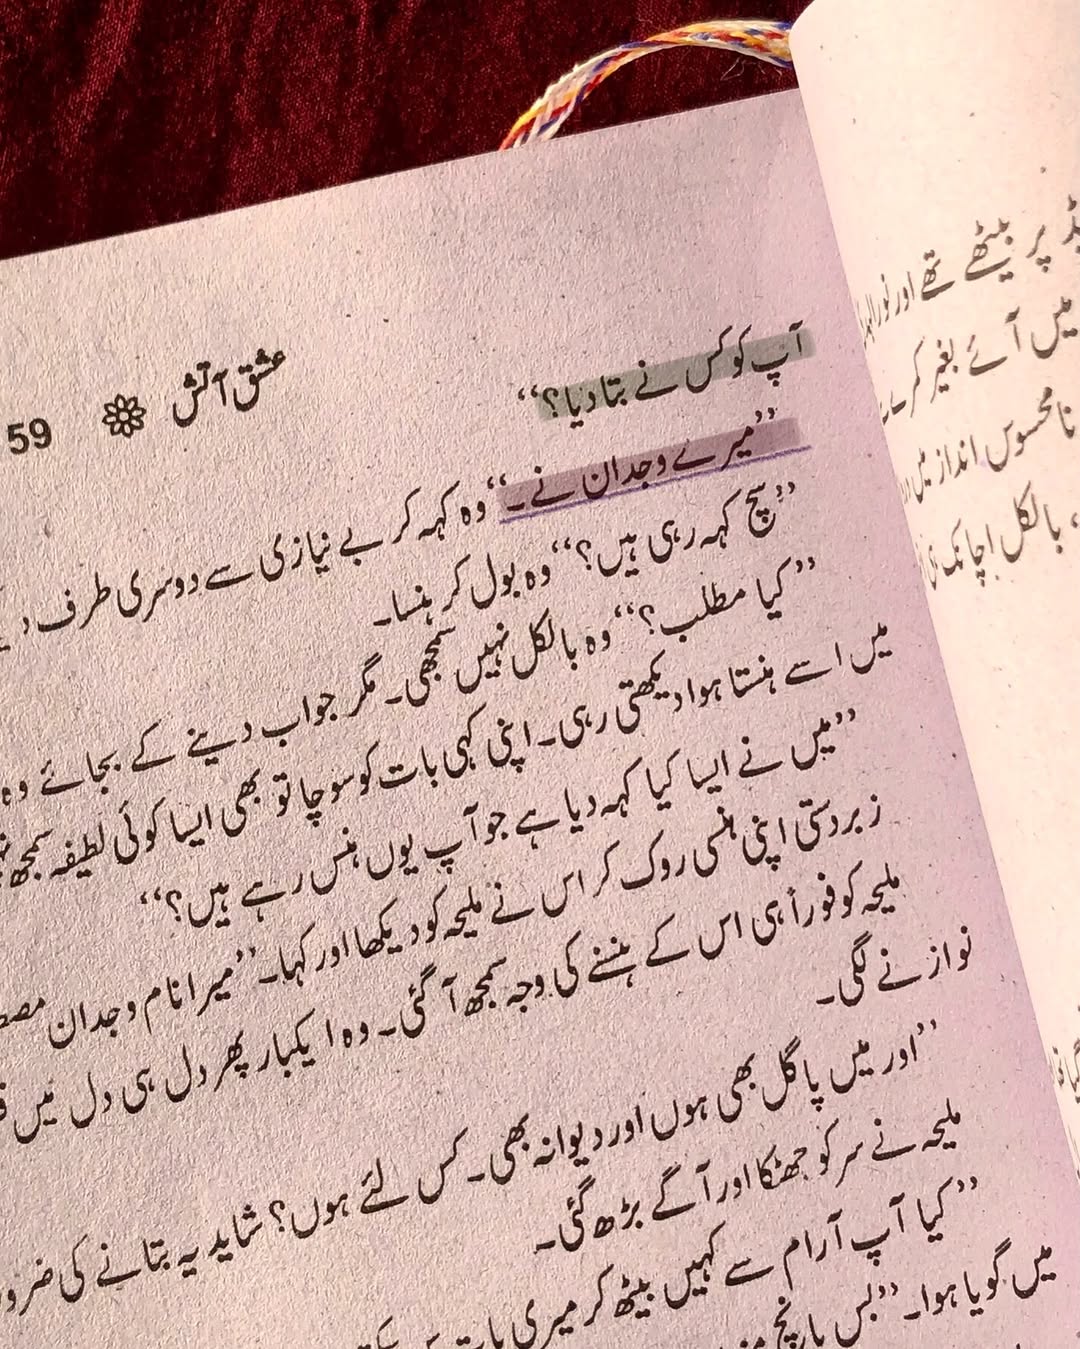 عشق آتش 59
آپ کو کس نے بتا دیا؟‘‘
’’میرے وجدان نے۔‘‘ وہ کہہ کر بے نیازی سے دوسری طرف
’’سچ کہہ رہی ہیں؟‘‘ وہ بول کر ہنسا۔
’’کیا مطلب؟‘‘ وہ بالکل نہیں سمجھی۔ مگر جواب دینے کے بجائے وہ
میں اسے ہنستا ہوا دیکھتی رہی۔ اپنی کہی بات کو سوچا تو بھی ایسا کوئی لطیفہ سمجھ
’’میں نے ایسا کیا کہہ دیا ہے جو آپ یوں ہنس رہے ہیں؟‘‘
زبردستی اپنی ہنسی روک کر اس نے ملیحہ کو دیکھا اور کہا۔ ’’میرا نام وجدان
ملیحہ کو فوراً ہی اس کے ہننے کی وجہ سمجھ آ گئی۔ وہ ایکبار پھر دل ہی دل میں
نوازنے لگی۔
’’اور میں پاگل بھی ہوں اور دیوانہ بھی۔ کس لئے ہوں؟ شاید یہ بتانے کی
ملیحہ نے سر کو جھٹکا اور آگے بڑھ گئی۔
’’کیا آپ آرام سے کہیں بیٹھ کر میری بات
میں گویا ہوا۔ ’’بس پانچ
پر بیٹھے تھے اور
میں آئے بغیر کمرے
نامحسوس انداز میں
بالکل اچانک ہی